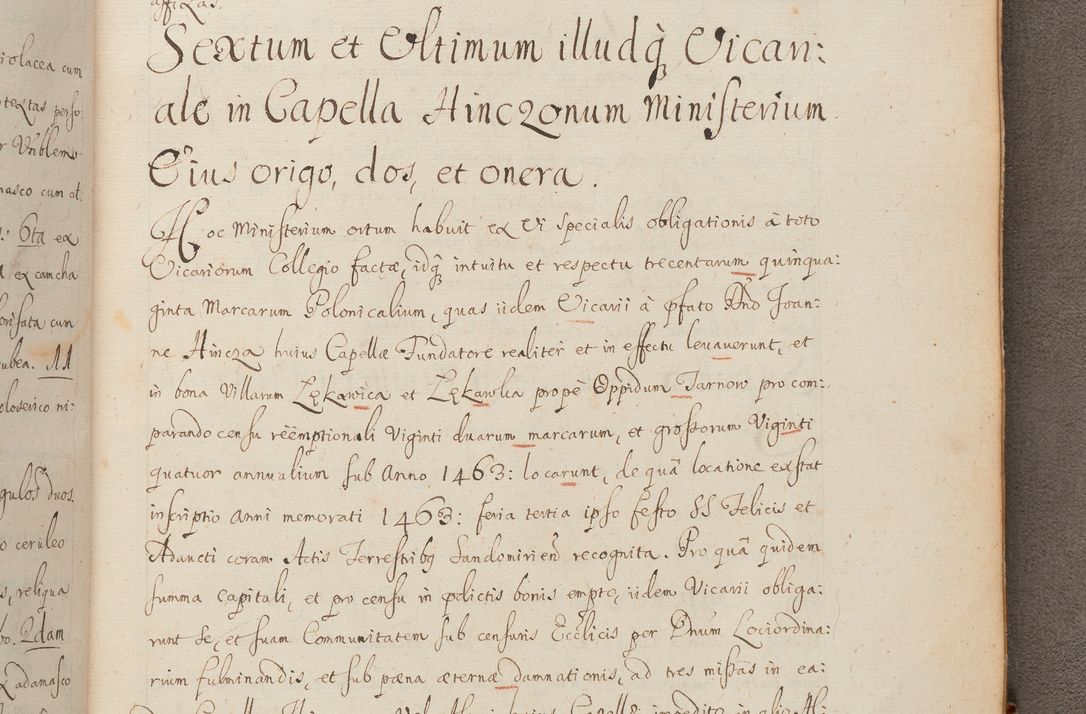 affixas.
Sextum et Vltimum illudq̃ Vican:
ale in Capella Hinczonum Ministerium
Eius origo, dos, et onera.
Hoc Ministerium ortum habuit ex vi specialis obligationis à toto
Vicariorum Collegio factæ, idq̃ intuitu et respectu trecentarum quinqua:
ginta Marcarum Polonicalium, quas iidem Vicarii à pfato Dño Joan:
ne Hincza huius Capellæ Fundatore realiter et in effectu levaverunt, et
in bona Villarum Lękawica et Lękawka propè Oppidum Tarnow pro com:
parando censu reëmptionali Viginti duarum marcarum, et grossorum Viginti
quatuor annualium sub Anno 1463: locarunt, de quâ locatione exstat
inscriptio Anni memorati 1463: feria tertia ipso festo SS Felicis et
Adaucti coram Actis Terrestribq Sandomirien̄ recognita. Pro quâ quidem
summa Capitali, et pro censu in pdictis bonis empto, iidem Vicarii obliga:
runt se, et suam Communitatem sub censuris Ecclicis per Dnum Lociordina:
rium fulminandis, et sub pæna æternæ damnationis, ad tres missas in ea:
iolacea cum
textas perso:
r Vmblemo
masco cum al:
s: 6ta ex
ex camcha
orisata cum
ubea. 11
olosenco ni:
gulos duos.
o ceruleo
s, reliqua
bo. 2dam
x adamasco